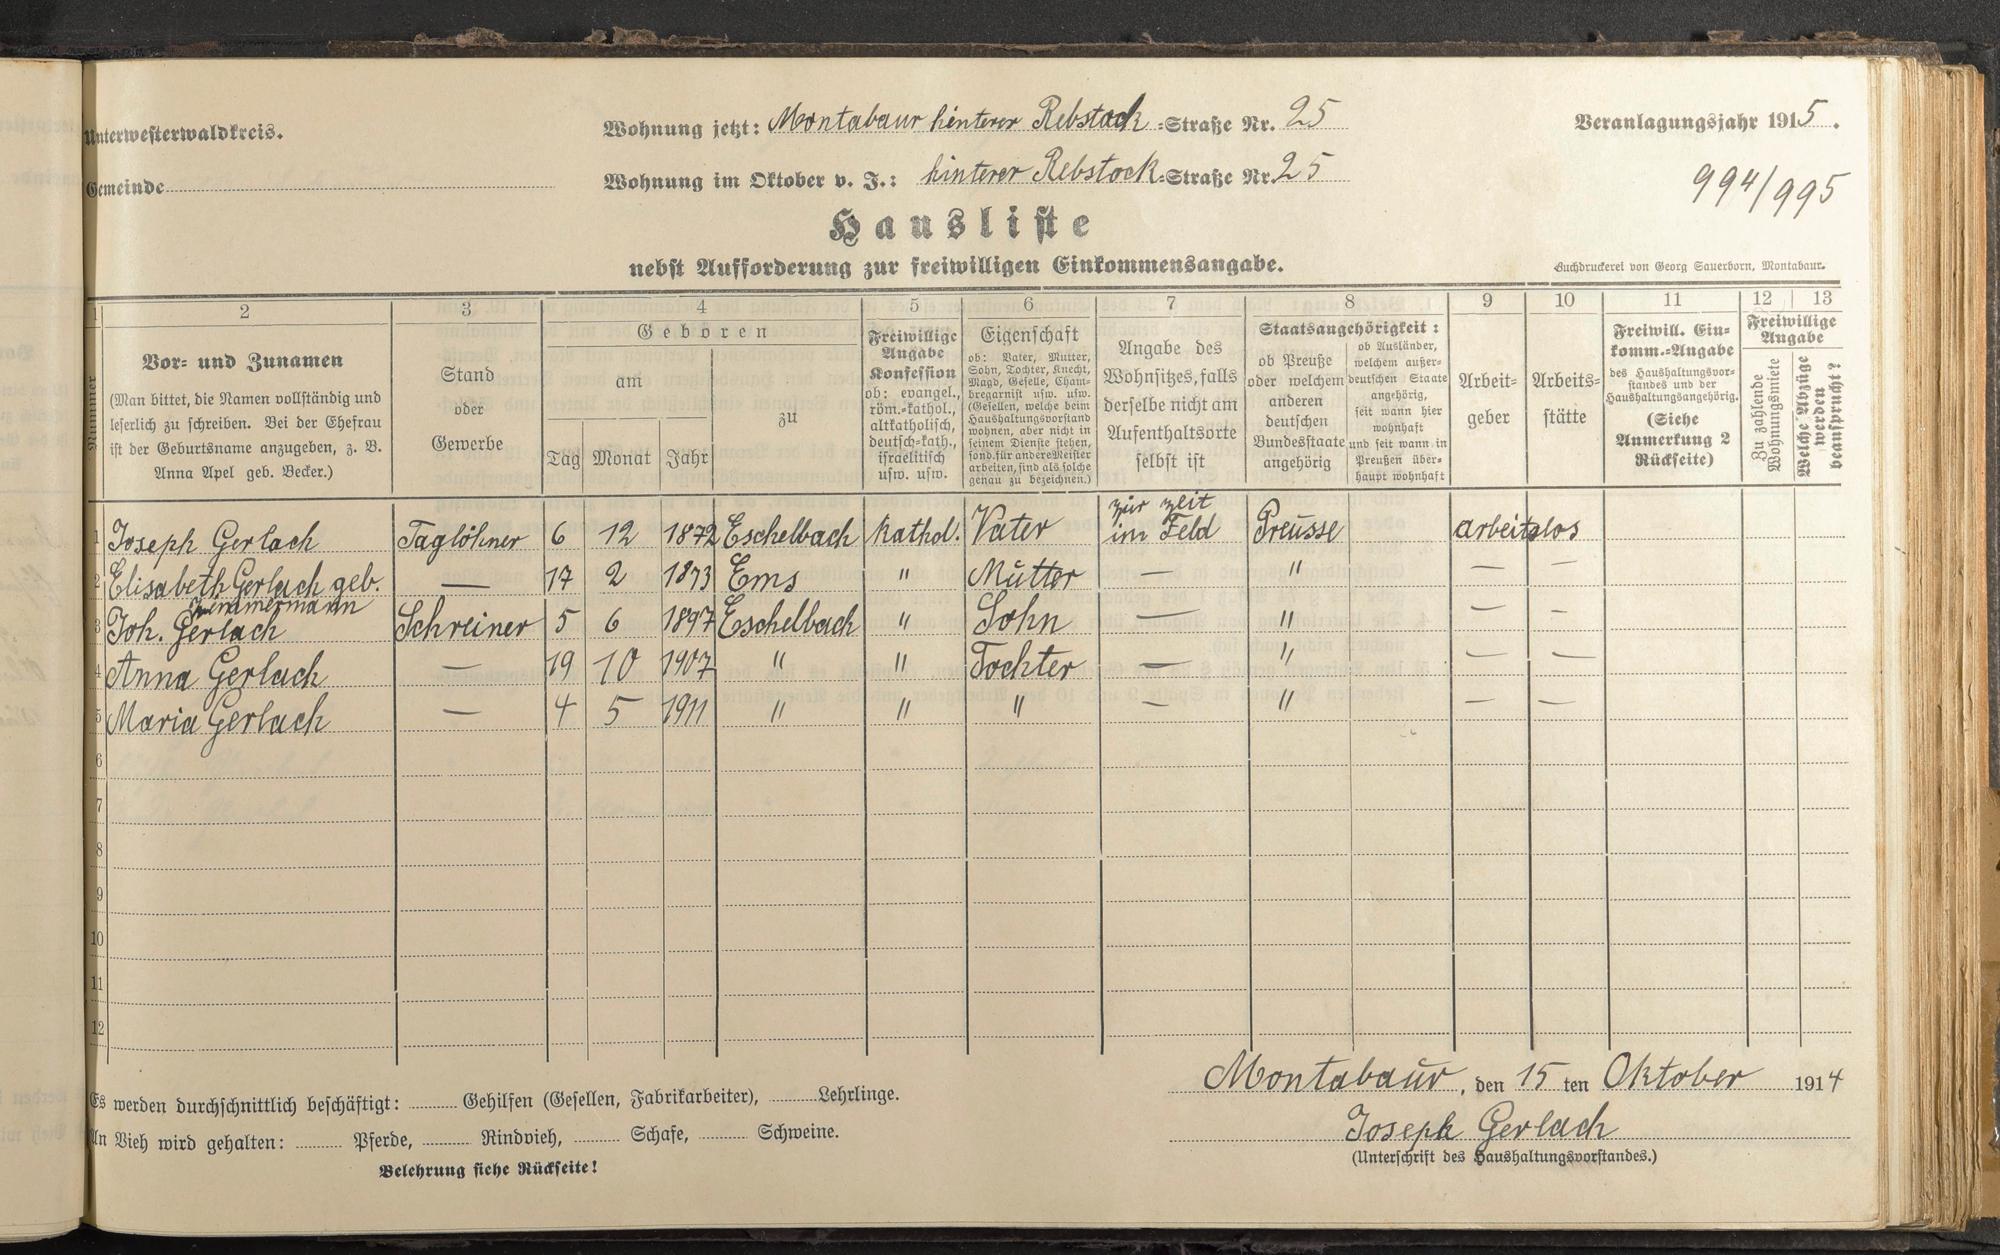 Unterwesterwaldkreis.
Gemeinde
Wohnung jetzt: Montabaur hinterer Rebstock-Straße Nr. 25
Wohnung im Oktober v. J.: hinterer Rebstock-Straße Nr. 25
Veranlagungsjahr 1915.
994/995
Hausliste
nebst Aufforderung zur freiwilligen Einkommensangabe.
Buchdruckerei von Georg Sauerborn, Montabaur.
1 2 3 4 5 6 7 8 9 10 11 12 13
Nummer
Vor- und Zunamen
(Man bittet, die Namen vollständig und
leserlich zu schreiben. Bei der Ehefrau
ist der Geburtsname anzugeben, z. B.
Anna Apel geb. Becker.)
Stand
oder
Gewerbe
Geboren
am
Tag Monat Jahr
zu
Freiwillige
Angabe
Konfession
ob: evangel.,
röm.-kathol.,
altkatholisch,
deutsch-kath.,
israelitisch
usw. usw.
Eigenschaft
ob: Vater, Mutter,
Sohn, Tochter, Knecht,
Magd, Geselle, Cham-
bregarnist usw. usw.
(Gesellen, welche beim
Haushaltungsvorstand
wohnen, aber nicht in
seinem Dienste stehen,
sond. für andere Meister
arbeiten, sind als solche
genau zu bezeichnen.)
Angabe des
Wohnsitzes, falls
derselbe nicht am
Aufenthaltsorte
selbst ist
Staatsangehörigkeit:
ob Preuße
oder welchem
anderen
deutschen
Bundesstaate
angehörig
ob Ausländer,
welchem außer-
deutschen Staate
angehörig,
seit wann hier
wohnhaft
und seit wann in
Preußen über-
haupt wohnhaft
Arbeit-
geber
Arbeits-
stätte
Freiwill. Ein-
komm.-Angabe
des Haushaltungsvor-
standes und der
Haushaltungsangehörig.
(Siehe
Anmerkung 2
Rückseite)
Freiwillige
Angabe
Zu zahlende
Wohnungsmiete
Welche Abzüge
werden
beansprucht?
1 Joseph Gerlach Taglöhner 6 12 1872 Eschelbach Kathol. Vater zur zeit im Feld Preusse arbeitslos
2 Elisabeth Gerlach geb. Zimmermann — 17 2 1873 Ems " Mutter — " — —
3 Joh. Gerlach Schreiner 5 6 1897 Eschelbach " Sohn — " — —
4 Anna Gerlach — 19 10 1907 " " Tochter — " — —
5 Maria Gerlach — 4 5 1911 " " " — " — —
6
7
8
9
10
11
12
Montabaur, den 15 ten Oktober 1914
Es werden durchschnittlich beschäftigt: Gehilfen (Gesellen, Fabrikarbeiter), Lehrlinge.
Joseph Gerlach
An Vieh wird gehalten: Pferde, Rindvieh, Schafe, Schweine.
(Unterschrift des Haushaltungsvorstandes.)
Belehrung siehe Rückseite!